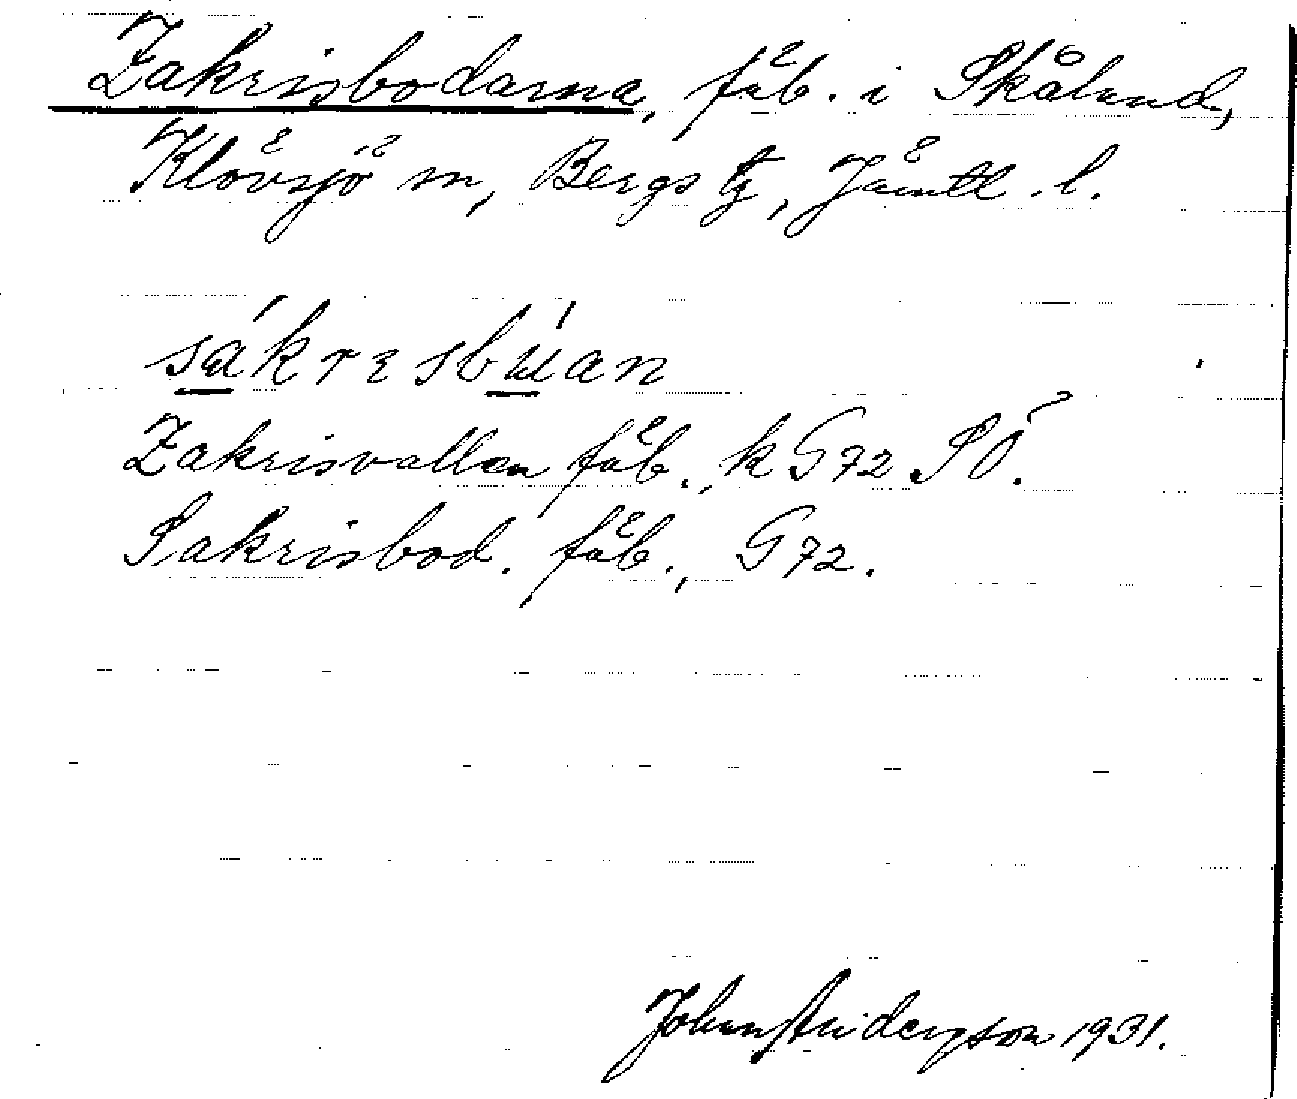 Zakrisbodarna, fäb. i Skålund,
Klövsjö sn, Bergs tg, Jämtl. l.
sákresbúan
Zakrisvallen fäb., k G72 SÖ.
Sakrisbod. fäb., G72.
Johan Anderson 1931.